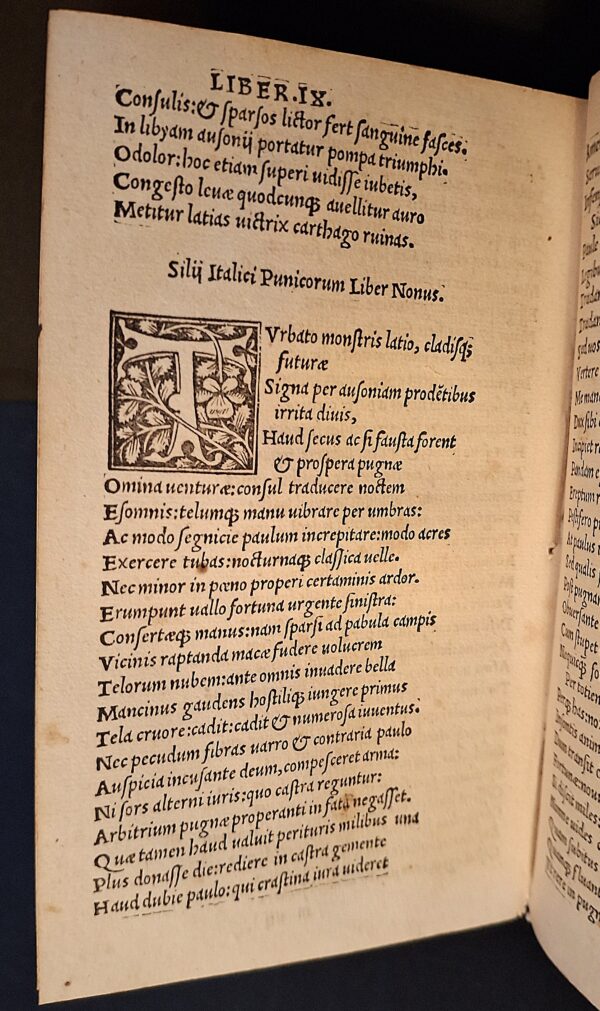 LIBER.IX.
Conſulis:& ſparſos lictor fert ſanguine faſces.
In libyam auſonij portatur pompa triumphi.
Odolor:hoc etiam ſuperi uidiſſe iubetis,
Congeſto leuæ quodcunqꝫ auellitur auro
Metitur latias uictrix carthago ruinas.
Silij Italici Punicorum Liber Nonus.
TVrbato monſtris latio, cladiſqꝫ
futuræ
Signa per auſoniam prodētibus
irrita diuis,
Haud ſecus ac ſi fauſta forent
& proſpera pugnæ
Omina uenturæ:conſul traducere noctem
Eſomnis:telumqꝫ manu uibrare per umbras:
Ac modo ſegnicie paulum increpitare:modo acres
Exercere tubas:nocturnaqꝫ claſſica uelle.
Nec minor in pœno properi certaminis ardor.
Erumpunt uallo fortuna urgente ſiniſtra:
Conſertæqꝫ manus:nam ſparſi ad pabula campis
Vicinis raptanda macæ fudere uolucrem
Telorum nubem:ante omnis inuadere bella
Mancinus gaudens hoſtiliqꝫ iungere primus
Tela cruore:cadit:cadit & numeroſa iuuentus.
Nec pecudum fibras uarro & contraria paulo
Auſpicia incuſante deum,compeſceret arma:
Ni ſors alterni iuris:quo caſtra reguntur:
Arbitrium pugnæ properanti in fata negaſſet.
Quæ tamen haud ualuit perituris milibus una
Plus donaſſe die:rediere in caſtra gemente
Haud dubie paulo:qui craſtina iura uideret
Vertere
Dux ſibi
Ereptum
At paulus
Sed qualis
Cum ſtupet